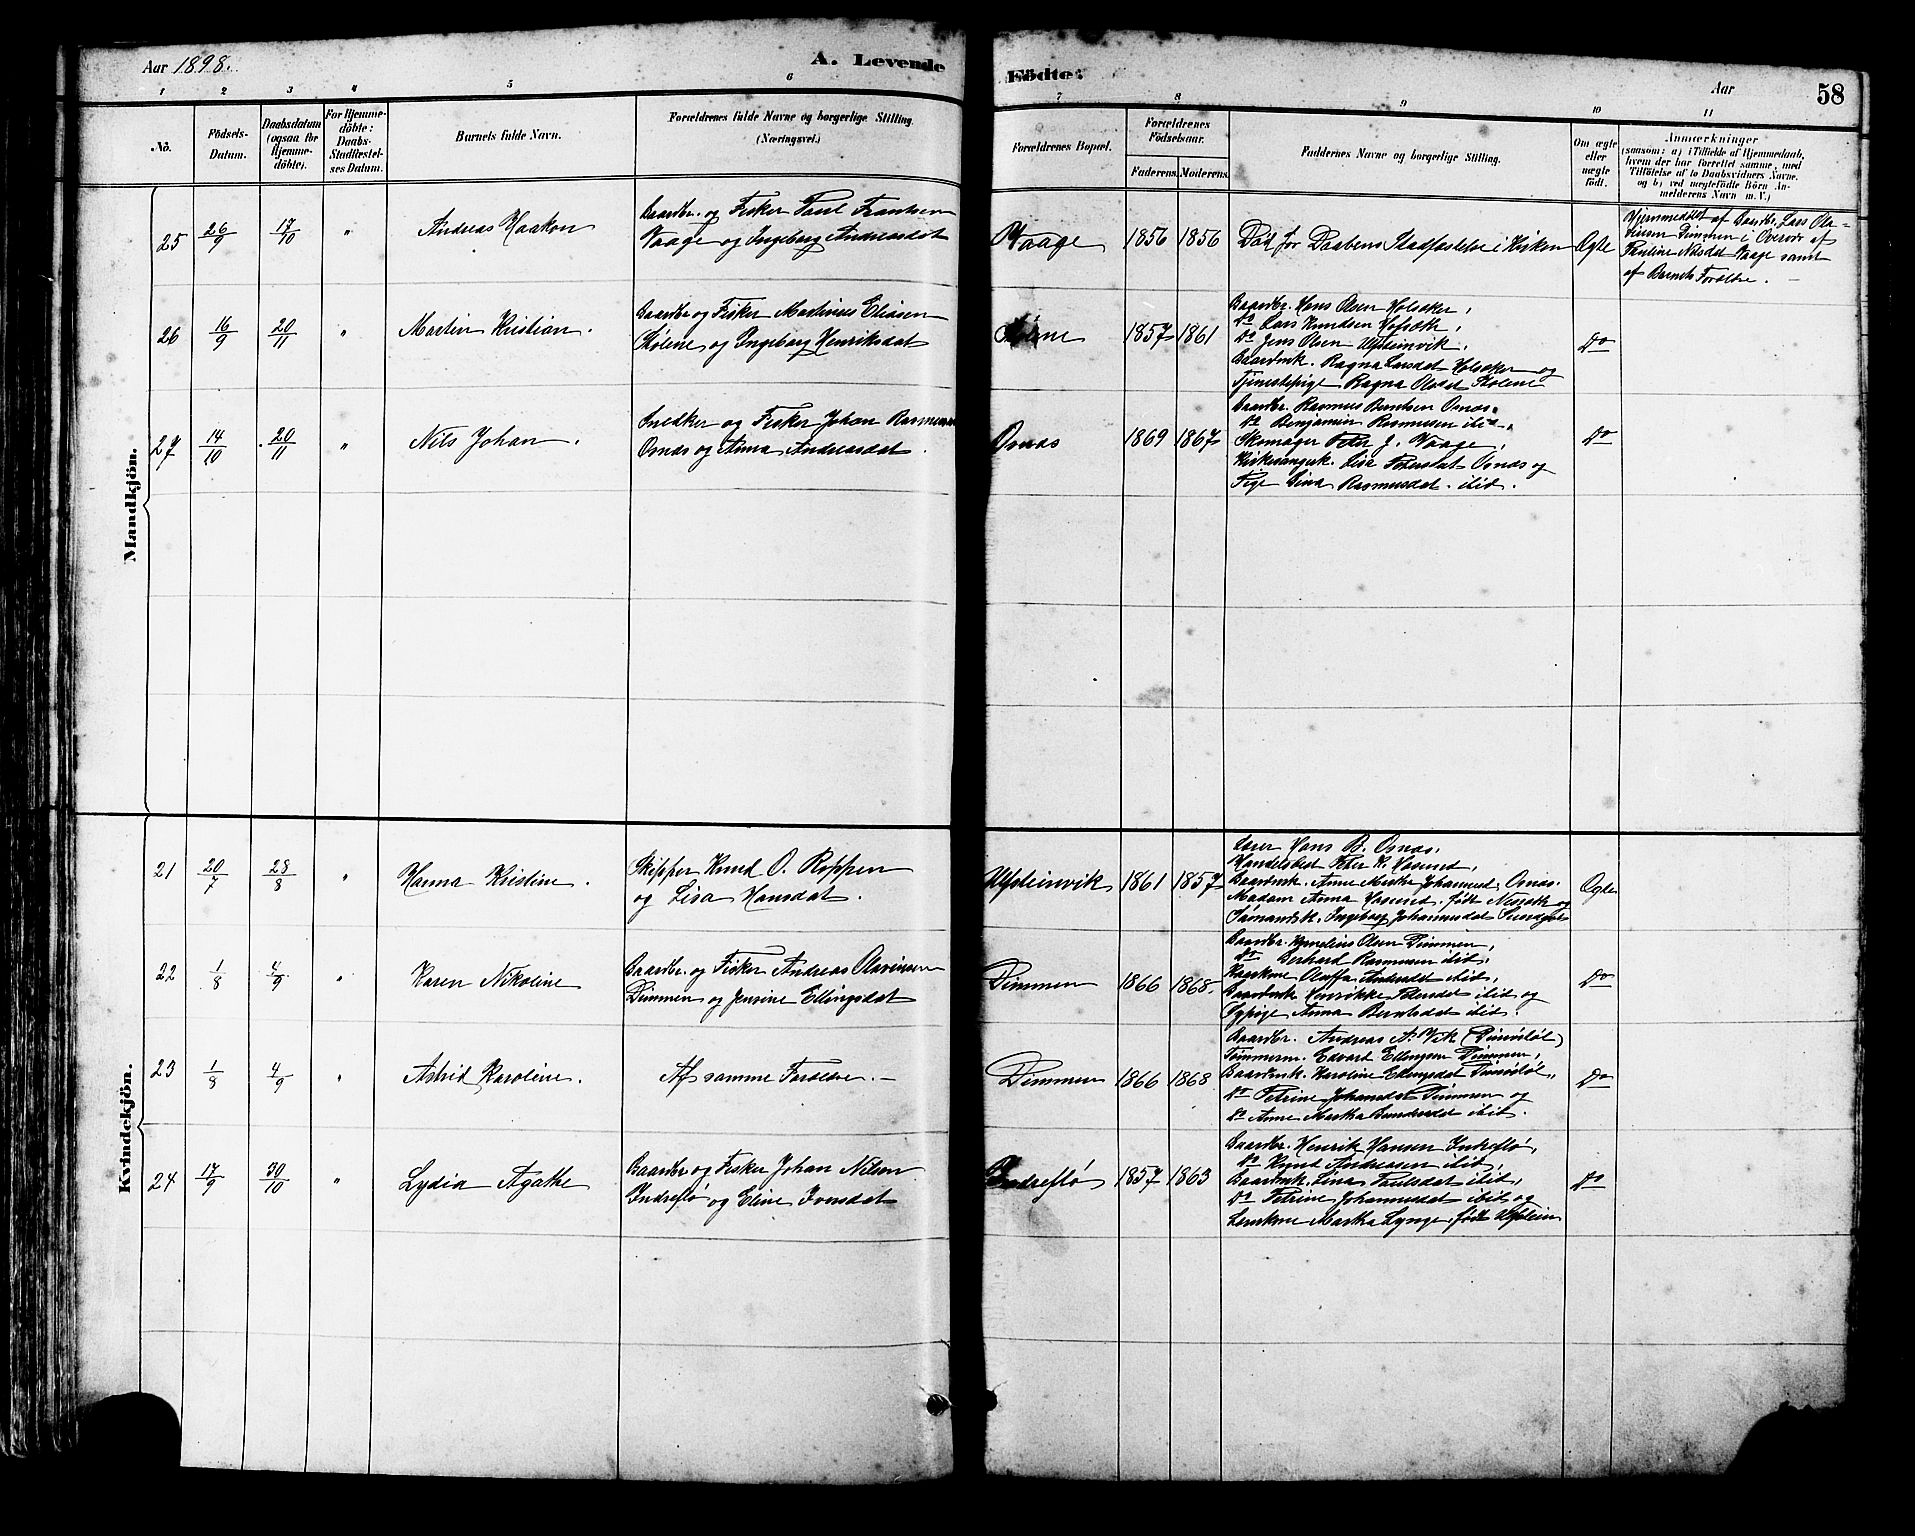 Aar 1898.
A. Levende Födte:
Aar
58
1 2 3 4 5 6 7 8 9 10 11
No.
Födsels-
Datum.
Daabsdatum
(ogsaa for
Hjemme-
döbte).
For Hjemme-
döbte:
Daabs-
Stadfæstel-
ses Datum.
Barnets fulde Navn.
Forældrenes fulde Navne og borgerlige Stilling.
(Næringsvei.)
Forældrenes Bopæl.
Forældrenes
Födselsaar.
Faderens. Moderens.
Faddernes Navne og borgerlige Stilling.
Om ægte
eller
uægte
födt.
Anmærkninger
(saasom: a) i Tilfælde af Hjemmedaab,
hvem der har forrettet samme, med
Tilföielse af to Daabsvidners Navne.
og b) ved uægtefödte Börn An-
melderens Navn m. V.)
Mandkjön.
25 26/9 17/10 " Andreas Haakon
Gaardbr. og Fisker Paul Frantsen
Vaage og Ingeborg Andreasdat
Vaage 1856 1856 Död før Daabens Stadfæstelse i Kirken Ægte
Hjemmedøbt af Gaardbr. Lars Ola-
visen Dimmen i Overvær af
Pauline Nilsdat Vaage samt
af Barnets Forældre. —
26 16/9 20/11 " Martin Kristian.
Gaardbr og Fisker Martinus Eliasen
Skolene og Ingeborg Henriksdat
1857 1861
Gaardbr. Hans Olsen Holsæker,
Do Lars Knudsen Hofsæth,
Do Jens Olsen Ulfsteinvik,
Gaardmk. Ragna Larsdat Holsæker og
Tjenestepige Ragna Olsdat Skolene
Do
27 14/10 20/11 " Nils Johan.
Snedker og Fisker Johan Rasmussen
Osnæs og Anna Andreasdat.
Osnæs 1869 1867
Gaardbr. Rasmus Berntsen Osnæs,
Do Benjamin Rasmussen ibid,
Skomager Peter J. Vaage,
Kirkesangerk. Lise Petersdat Osnæs og
Pige Lina Rasmusdat. ibid.
Do
Kvindekjön.
21 20/7 28/8 " Hanna Kristine.
Skipper Knud O. Roppen
og Lisa Hansdat.
Ulfsteinvik 1861 1857
Lærer Hans B. Osnæs,
Handelsbet Peter K. Hasund,
Gaardmk. Anne Marthe Johannesd. Osnæs.
Madam Anna Hasund. født Næsseth og
Sømandsk. Ingeborg Johannesdat Sundgot
Ægte
22 1/8 4/9 " Karen Nikoline
Gaardbr. og Fisker Andreas Olavinsen
Dimmen og Jensine Ellingsdat
Dimmen 1866 1868.
Gaardbr. Kornelius Olsen Dimmen,
Do Gerhard Rasmussen ibid,
Olaffa Andersdat ibid,
Gaardmk Henrikke Petersdat ibid og
Sypige Anna Berntsdat ibid.
Do
23 1/8 4/9 " Astrid Karoline.
Af samme Forældre. —
Dimmen 1866 1868
Gaardbr. Andreas N. Vik
Tømmerm. Edvart Ellingsen Dimmen,
Gaardmk. Karoline Ellingsdat
Do Petrine Johansdat Dimmen og
Do Anne Martha ibid.
Do
24 17/9 30/10 " Lydia Agathe
Gaardbr og Fisker Johan Nilsen
Indreflø og Eline Jonsdat
Indreflø 1857 1863
Gaardbr. Henrik Hansen Indreflø,
Do Knud Andreasen ibid,
Gaardmk. Lina Paulsdat ibid,
Do Petrine Johannesdat ibid og
Martha Lynge, født Ulfstein
Do